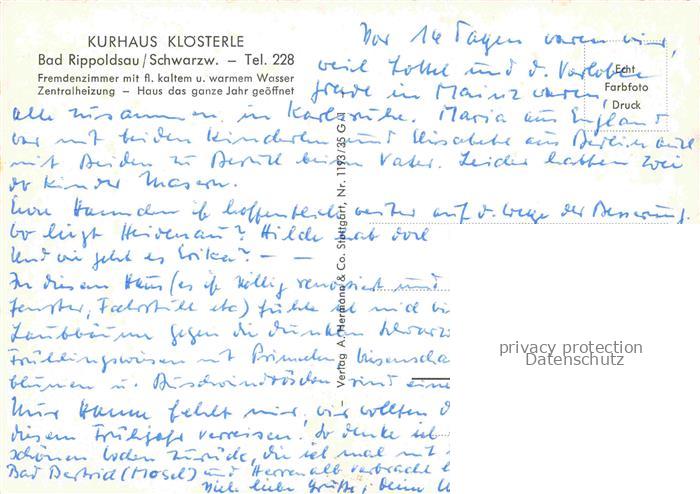 KURHAUS KLÖSTERLE
Bad Rippoldsau/Schwarzw. – Tel. 228
Fremdenzimmer mit fl. kaltem u. warmem Wasser
Zentralheizung – Haus das ganze Jahr geöffnet
Echt
Farbfoto
Druck
Vor 14 Tagen waren wir,
weil Lottel und d. Verlobte
grade in Mainz waren,
alle zusammen in Karlsruhe. Maria aus England
war mit beiden Kinderlen und Elisabeth aus Berlin auch
mit Beiden zu Besuch beim Vater. Leider hatten zwei
der Kinder Masern.
Eure Hanna ist hoffentlich weiter auf d. Wege der Besserung.
Wo liegt Heidenau? Hilde hab dort
Und wie geht es Erika? – –
In diesem Haus (es ist völlig renoviert und
Fenster, Fahrstuhl etc) fühle ich mich
Laubbäume gegen die dunklen Schwarz
Frühlingswiesen mit Primeln, Wiesenscha
blumen u. Buschwindröschen sind eine
Mir Hanne fehlt mir, wir wollten
diesem Frühjahr verreisen. So denke ich
schönen Wochen zurück, die ich mal mit
Bad Bertrich (Mosel) und Herrenalb verbracht
Viele liebe Grüße, Deine
Verlag A. Hermann & Co. Stuttgart, Nr. 1193/35 G/1
privacy protection
Datenschutz